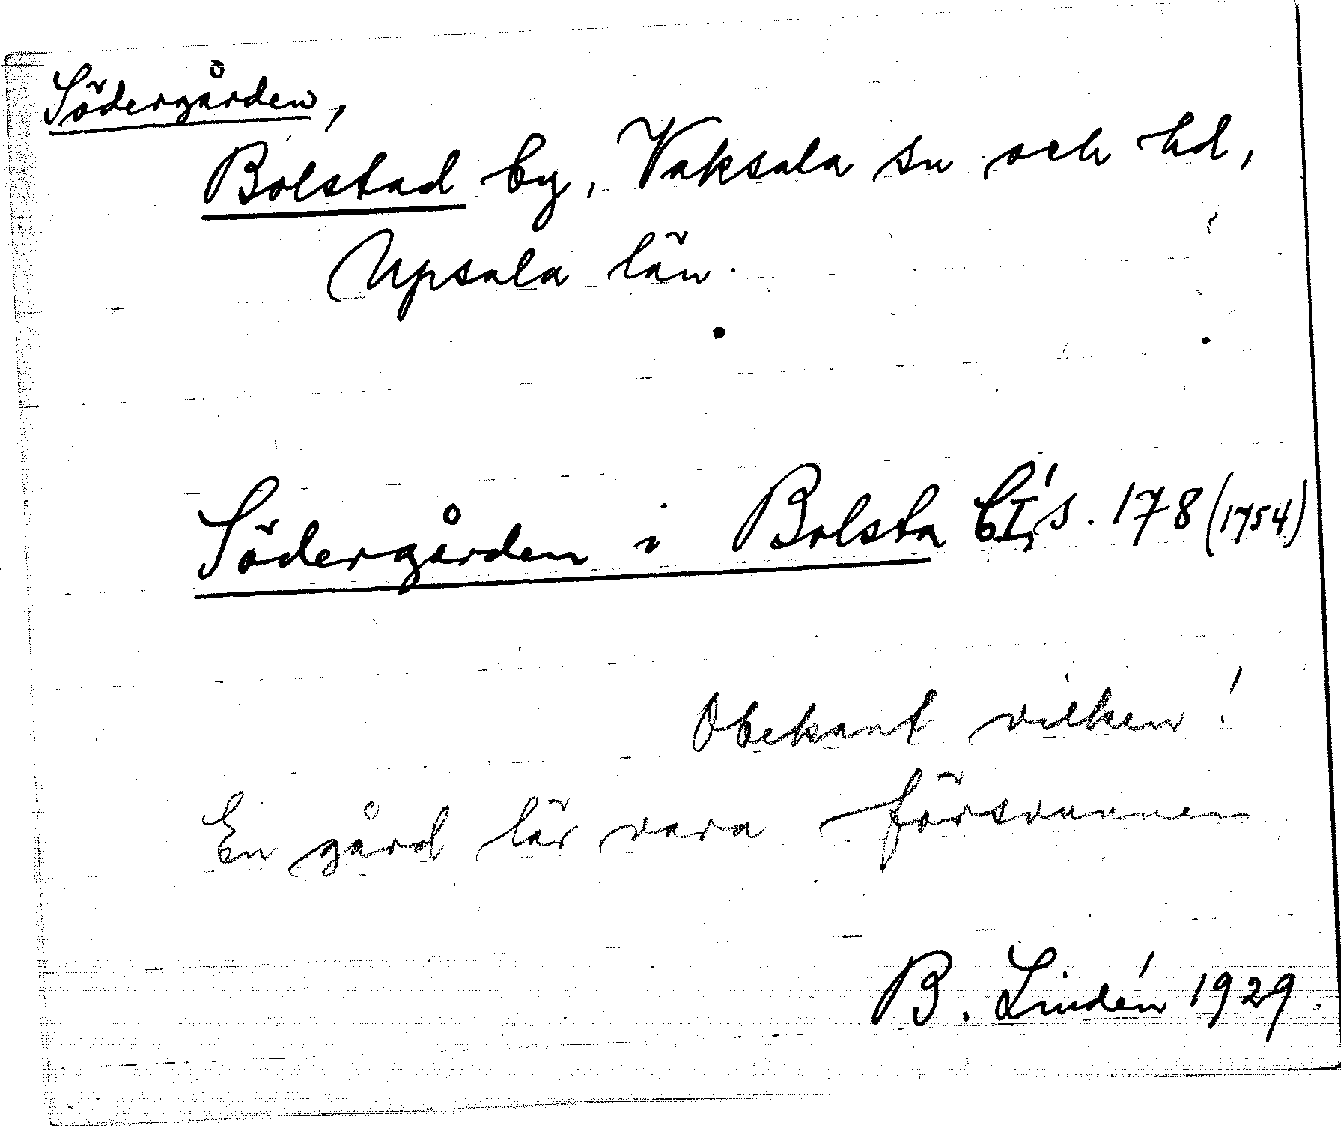 Södergården,
Bolstad by, Vaksala sn och hd,
Upsala län.
Södergården i Bolsta CI, s. 178 (1754)
Obekant vilken!
En gård lär vara försvunnen
B. Lindén 1929.